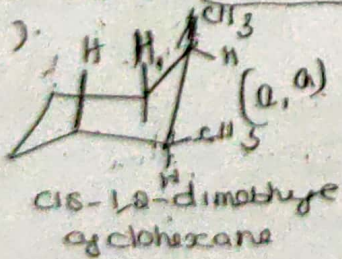 ).
CH3
H H H
(a,a)
CH3
H
cis-1,2-dimethyl
cyclohexane